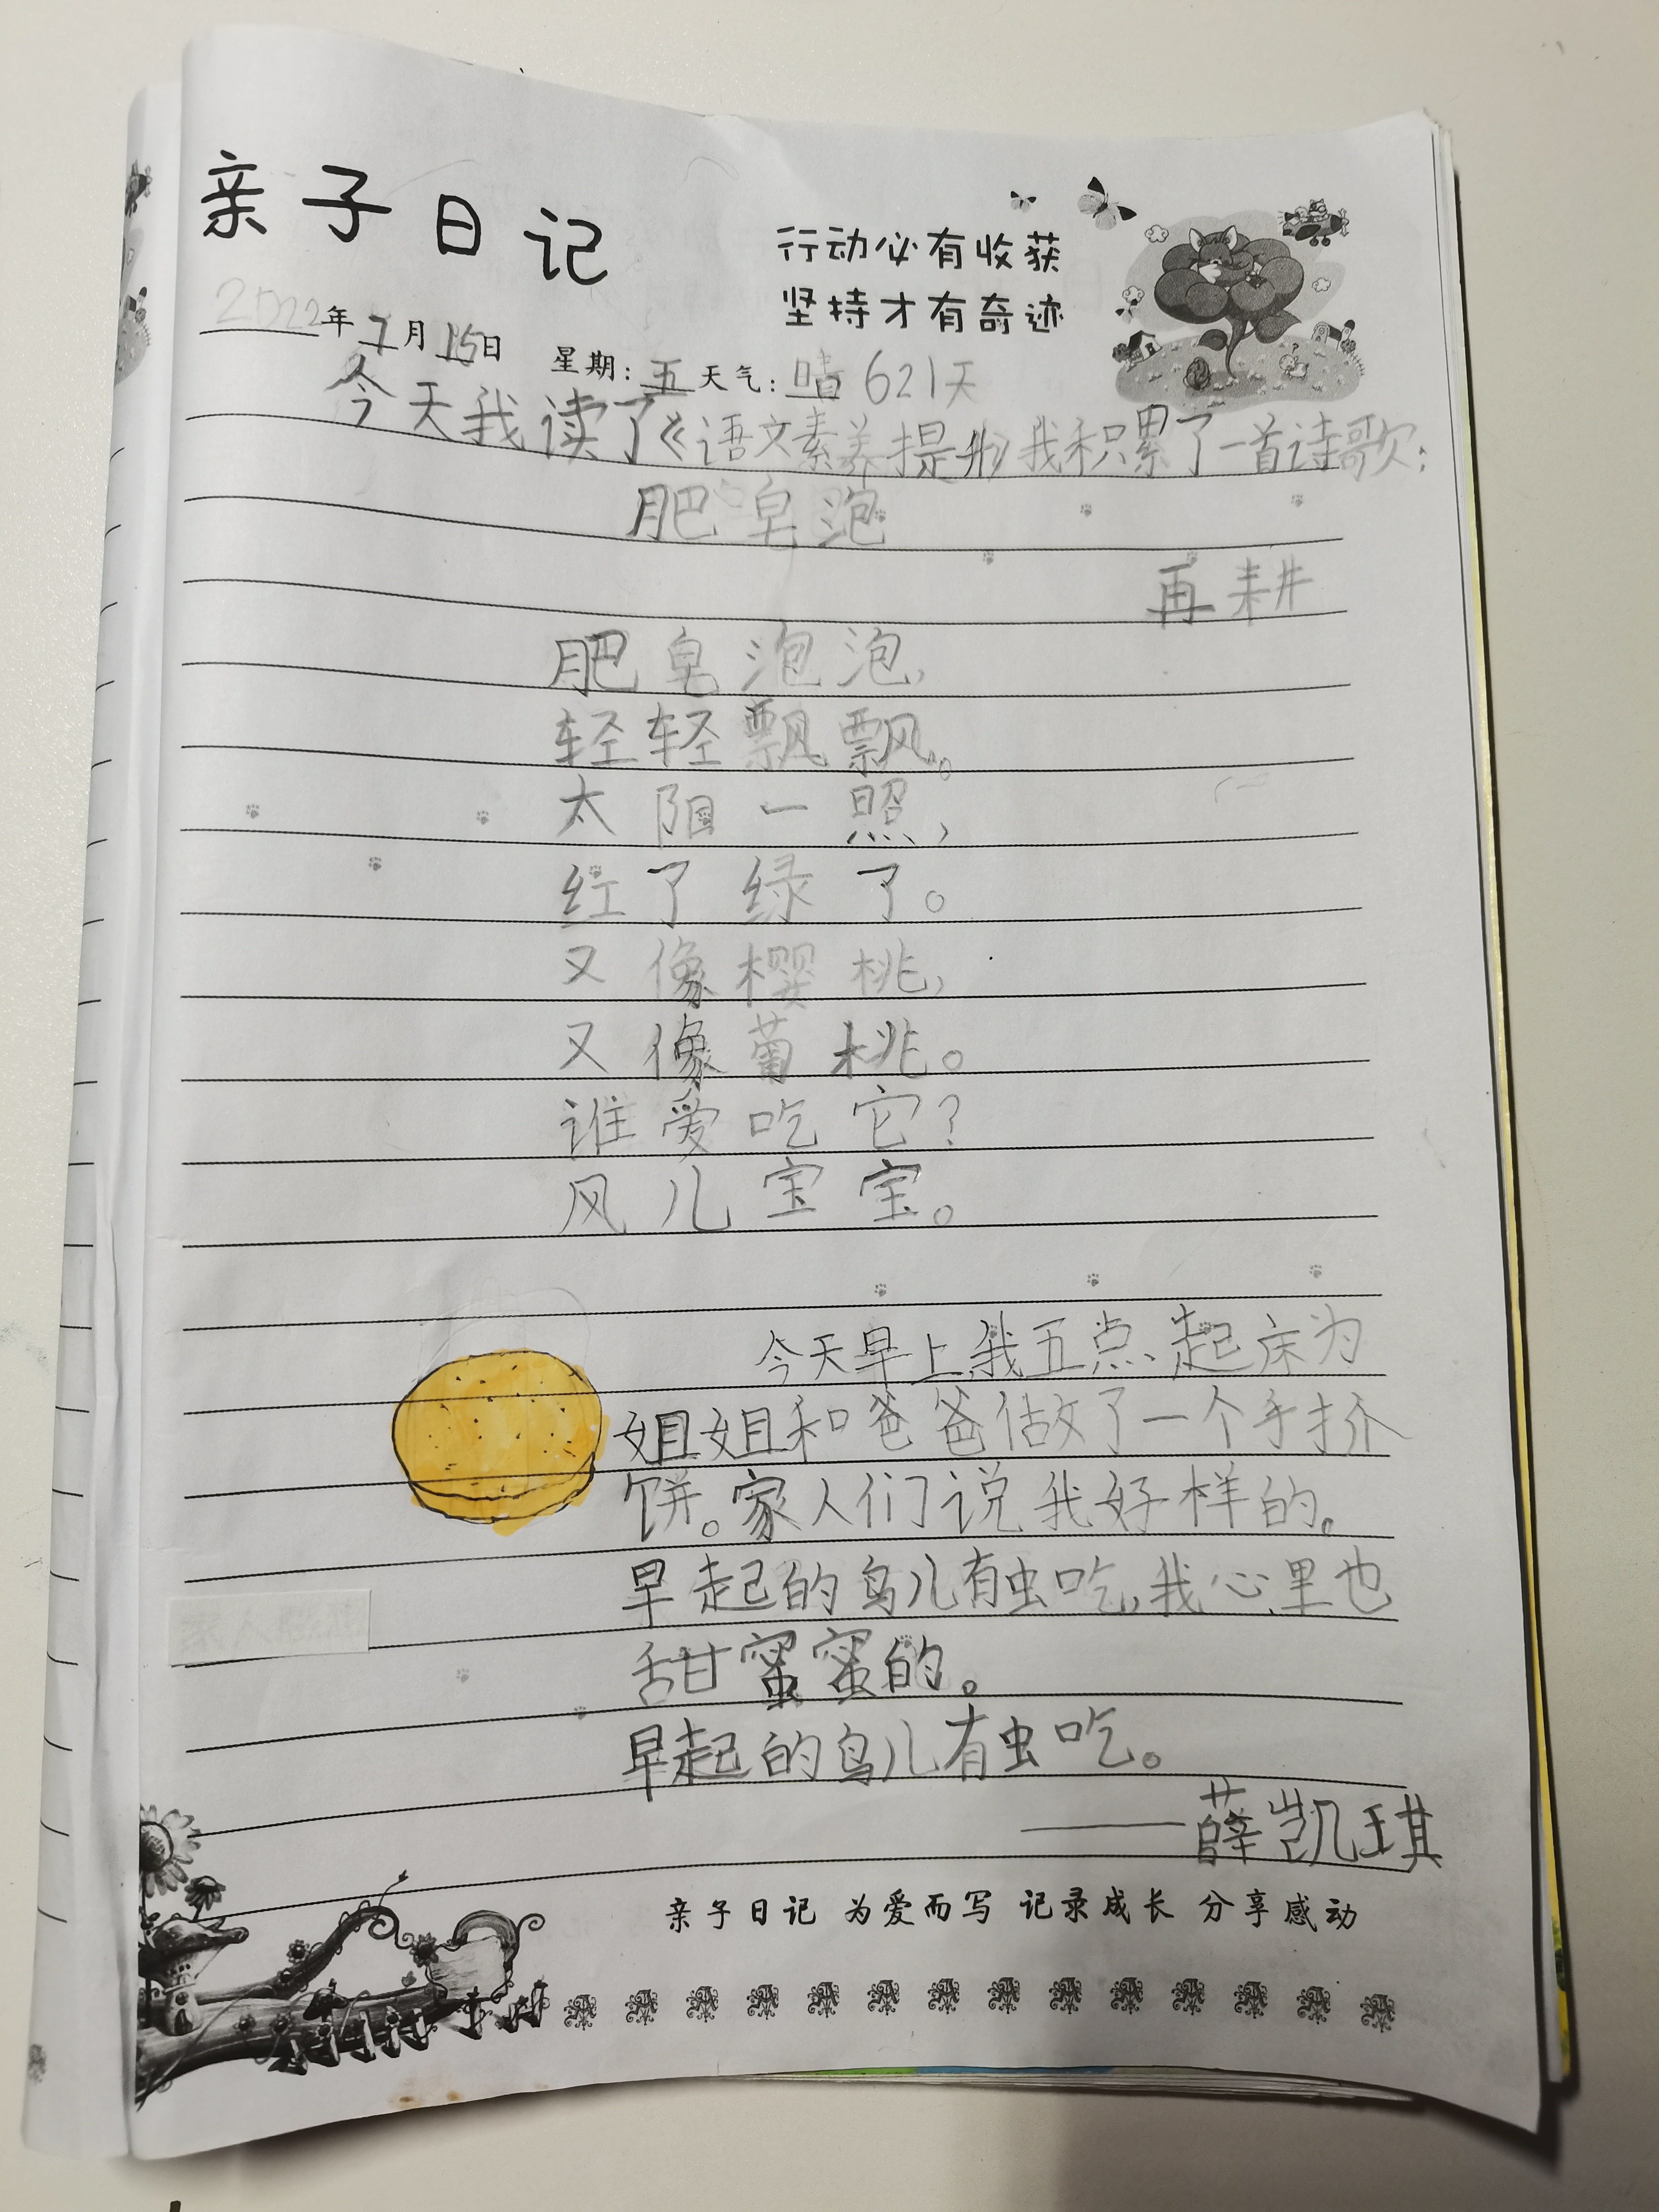 亲子日记
行动必有收获
坚持才有奇迹
2022年7月15日 星期:五 天气:晴 621天
今天我读了《语文素养提升》我积累了一首诗歌:
肥皂泡
再耕
肥皂泡泡,
轻轻飘飘。
太阳一照,
红了绿了。
又像樱桃,
又像葡桃。
谁爱吃它?
风儿宝宝。
今天早上,我五点起床为
姐姐和爸爸做了一个手抓
饼。家人们说我好样的。
早起的鸟儿有虫吃,我心里也
甜蜜蜜的。
早起的鸟儿有虫吃。
——薛凯琪
亲子日记 为爱而写 记录成长 分享感动